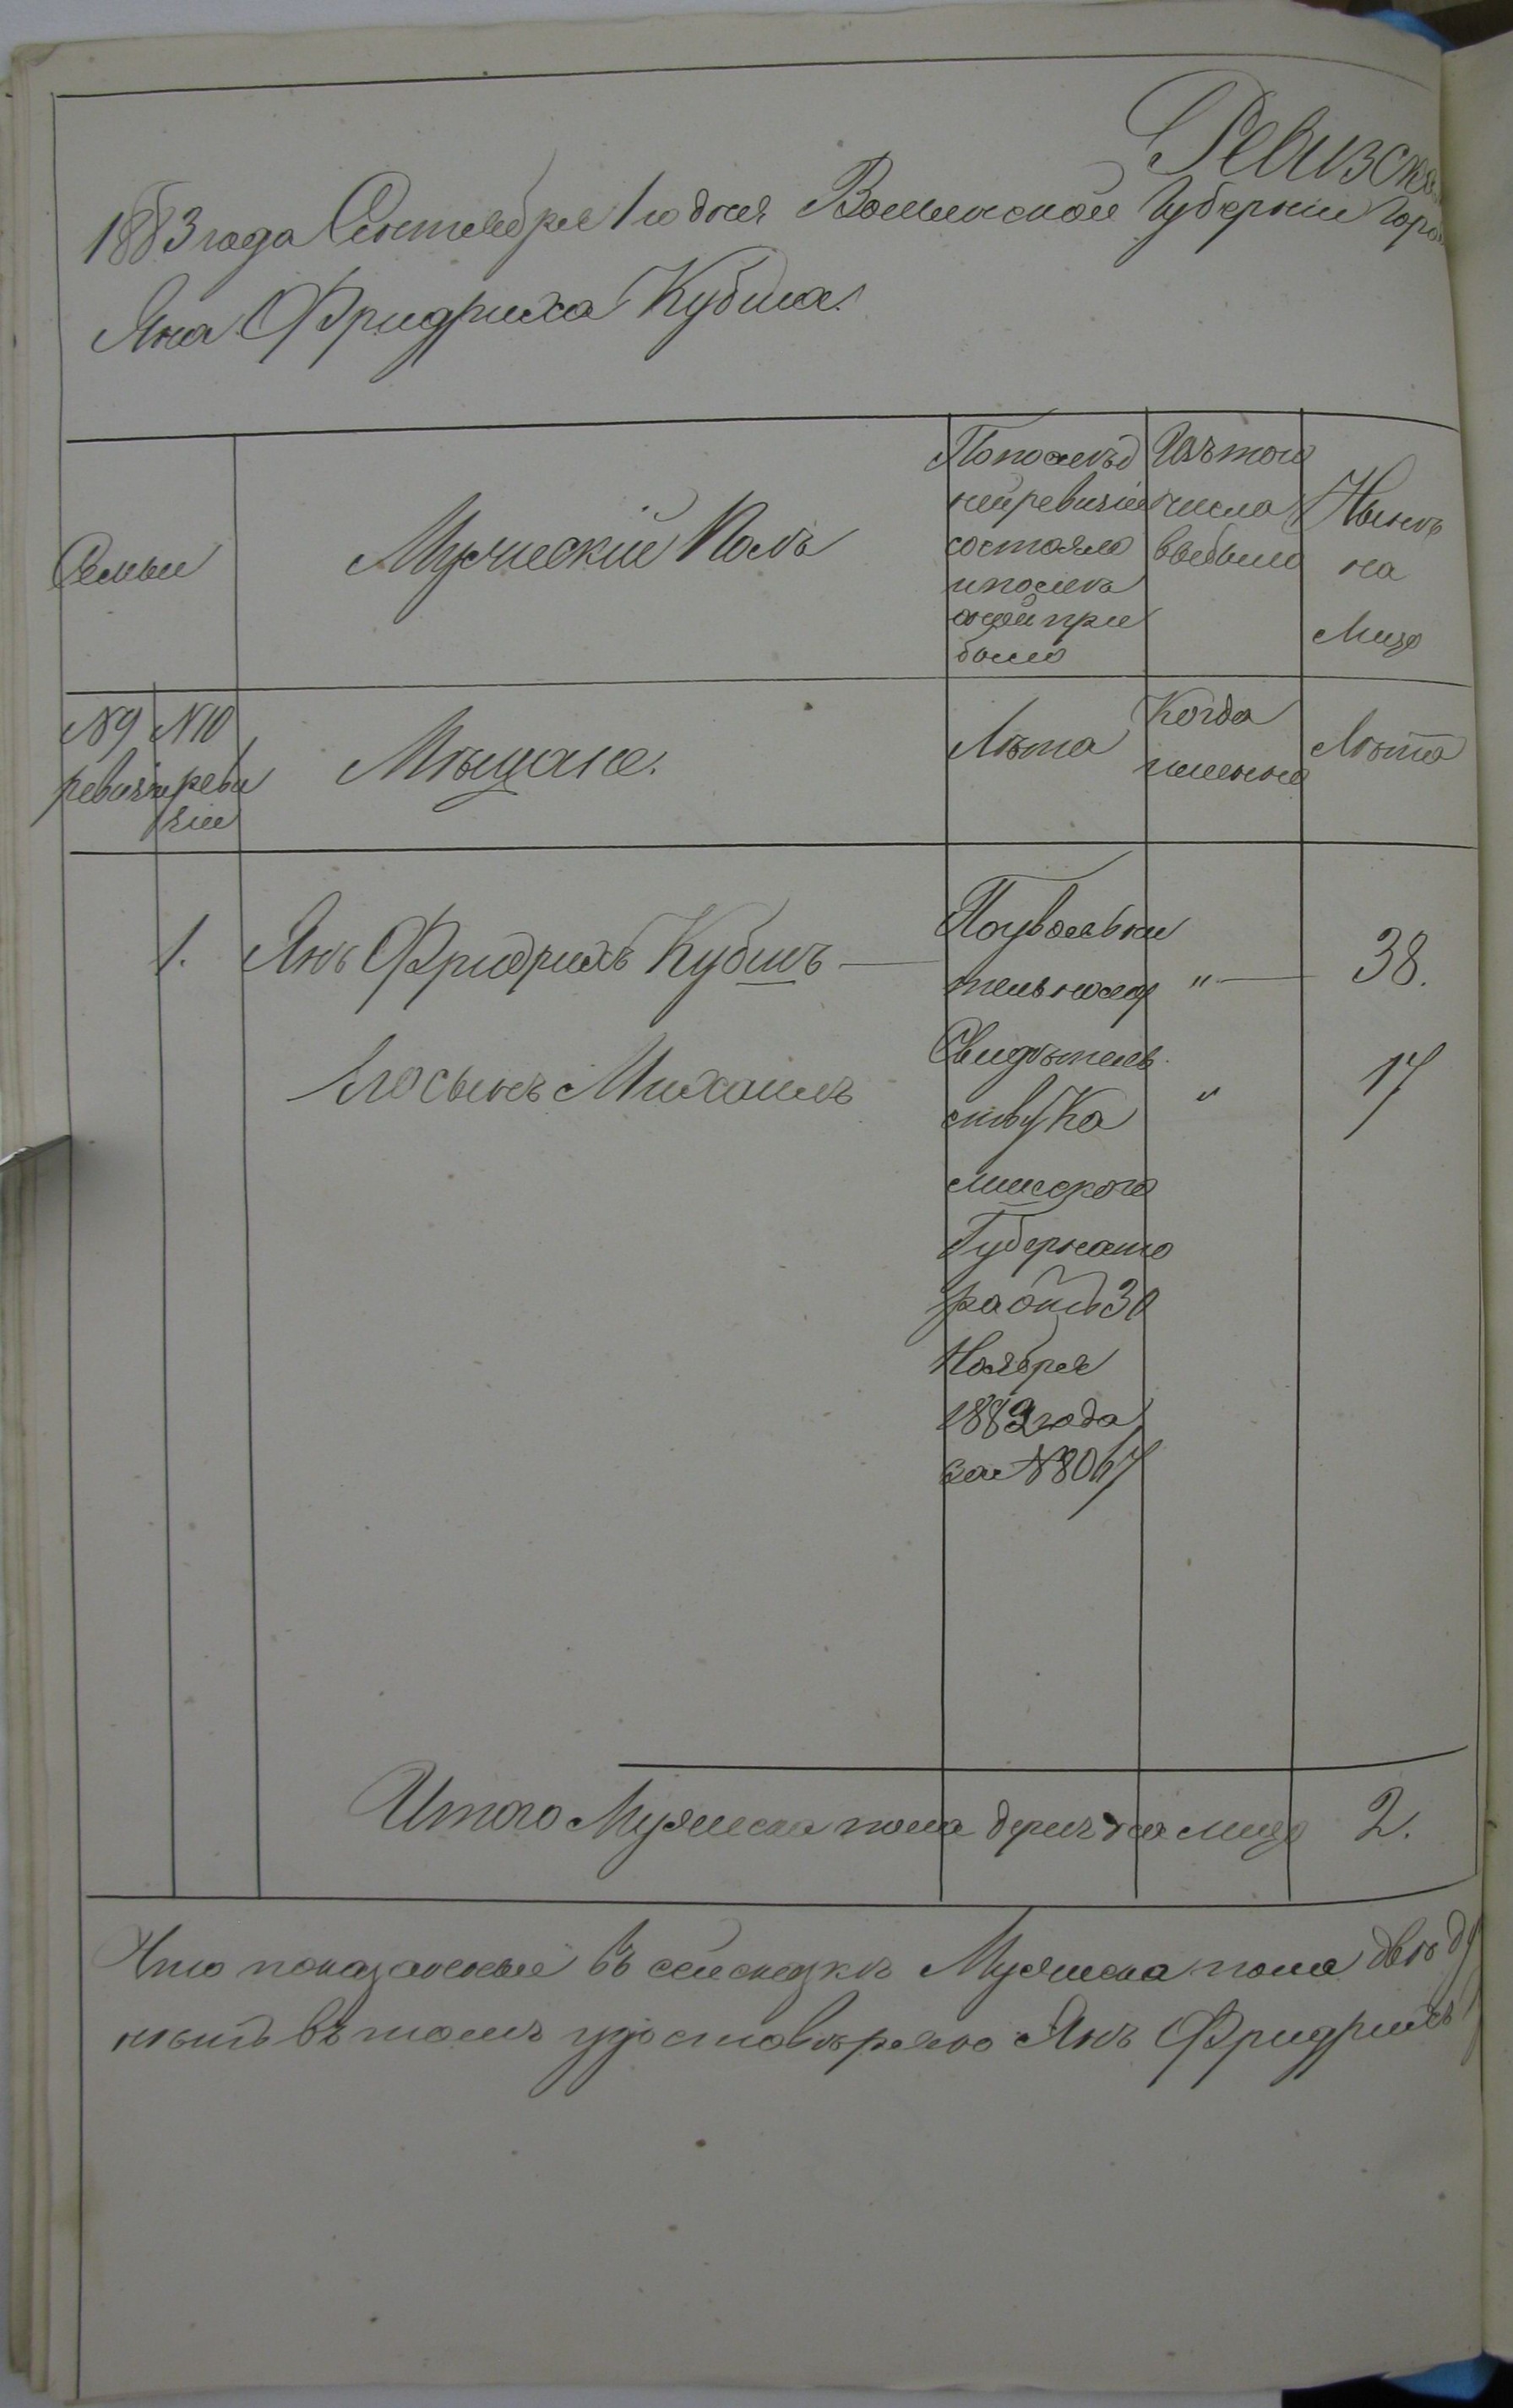 Ревизска
1883 года Сентября 1го дня Волынской Губернии Горо
Яна Фридриха Кубша
Семьи
Мужескій Полъ
Попослѣд
ней ревизіи
состояло
и послѣ
оной при
было
Изъ того
числа
выбыло
Нынѣ
на
Лицо
№9
ревизіи
№10
реви
зіи
Мѣщане.
Лѣта
Когда
именно
Лѣта
1. Янъ Фридрихъ Кубшъ — " — 38.
Его сынъ Михаилъ " 17
Поувольни
тельному
Свидѣтель
ству Ка
лишского
Губернато
ра отъ 30
Ноября
1882 года
за №8067
Итого Мужеска пола душъ на лицо 2.
Что показанные въ сей сказкѣ Мужеска пола двѣ ду
въ томъ удостовѣряю Янъ Фридрихъ